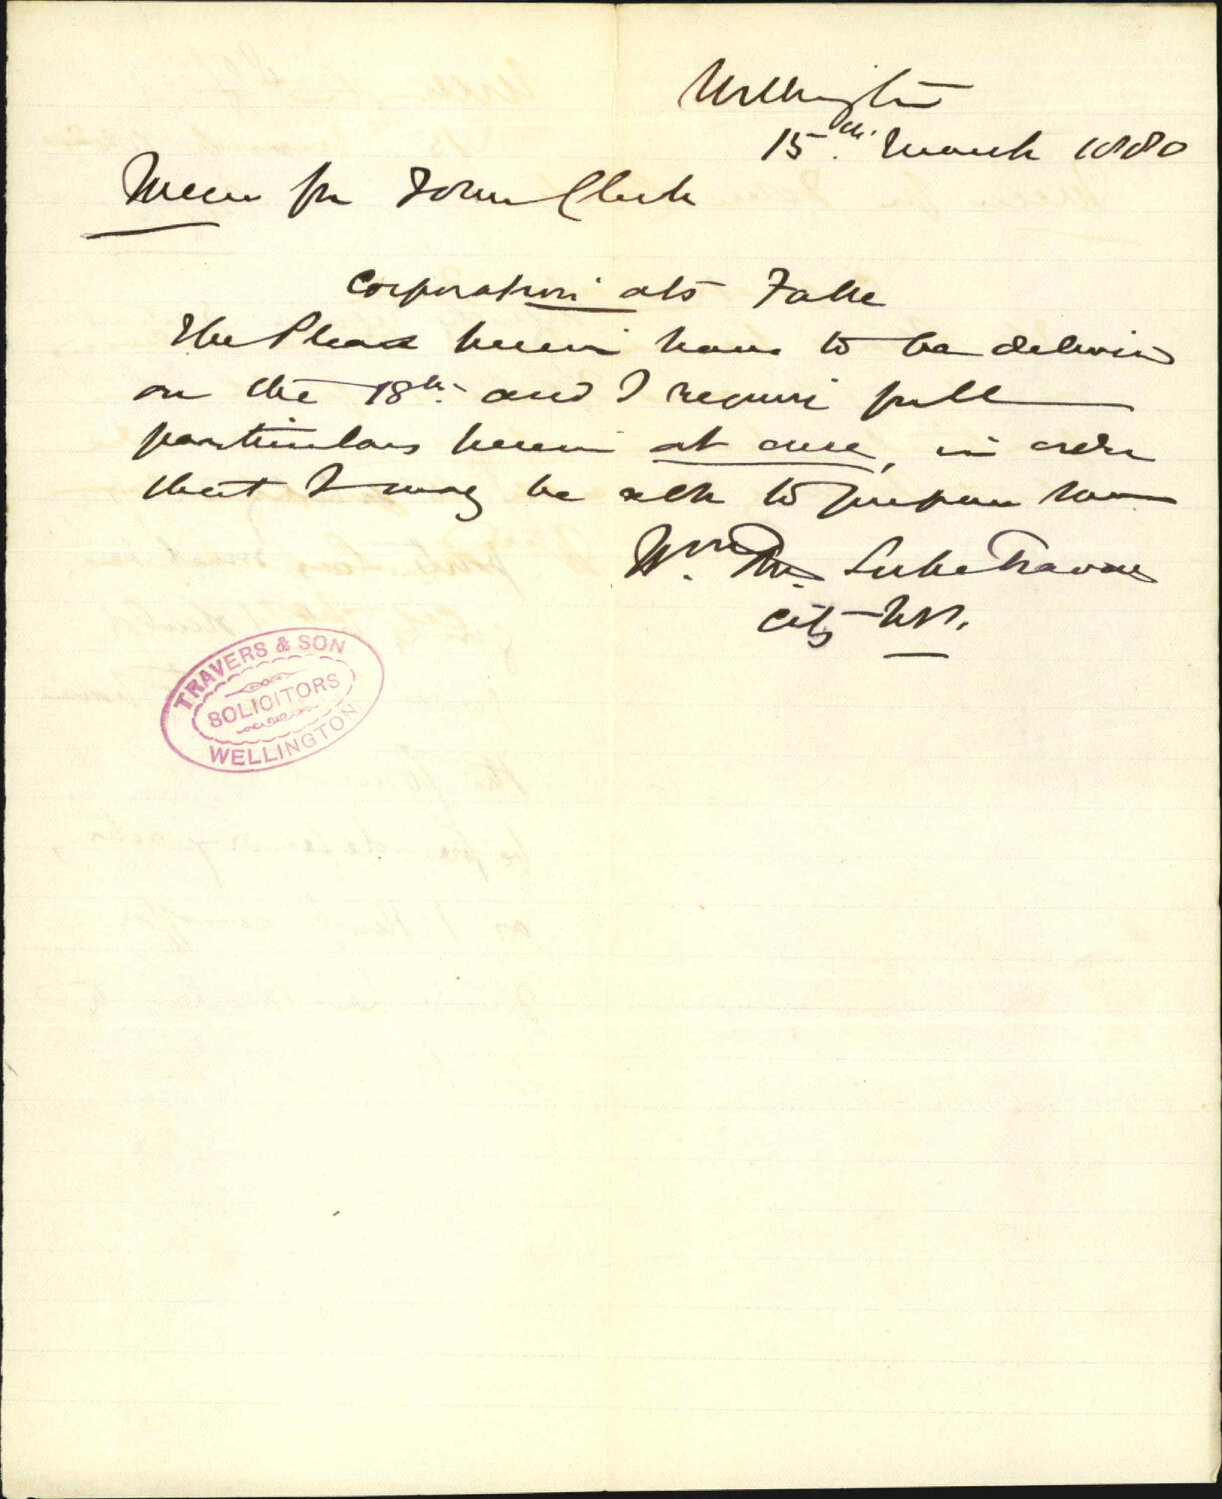 Wellington
15th. March 1880
Mem for Town Clerk
Corporation ats
The Pleas herein have to be delivered
on the 18th. and I require full
particulars herein at once, in order
that I may be able to prepare
Wm. Thos. Locke Travers
City
TRAVERS & SON
SOLICITORS
WELLINGTON